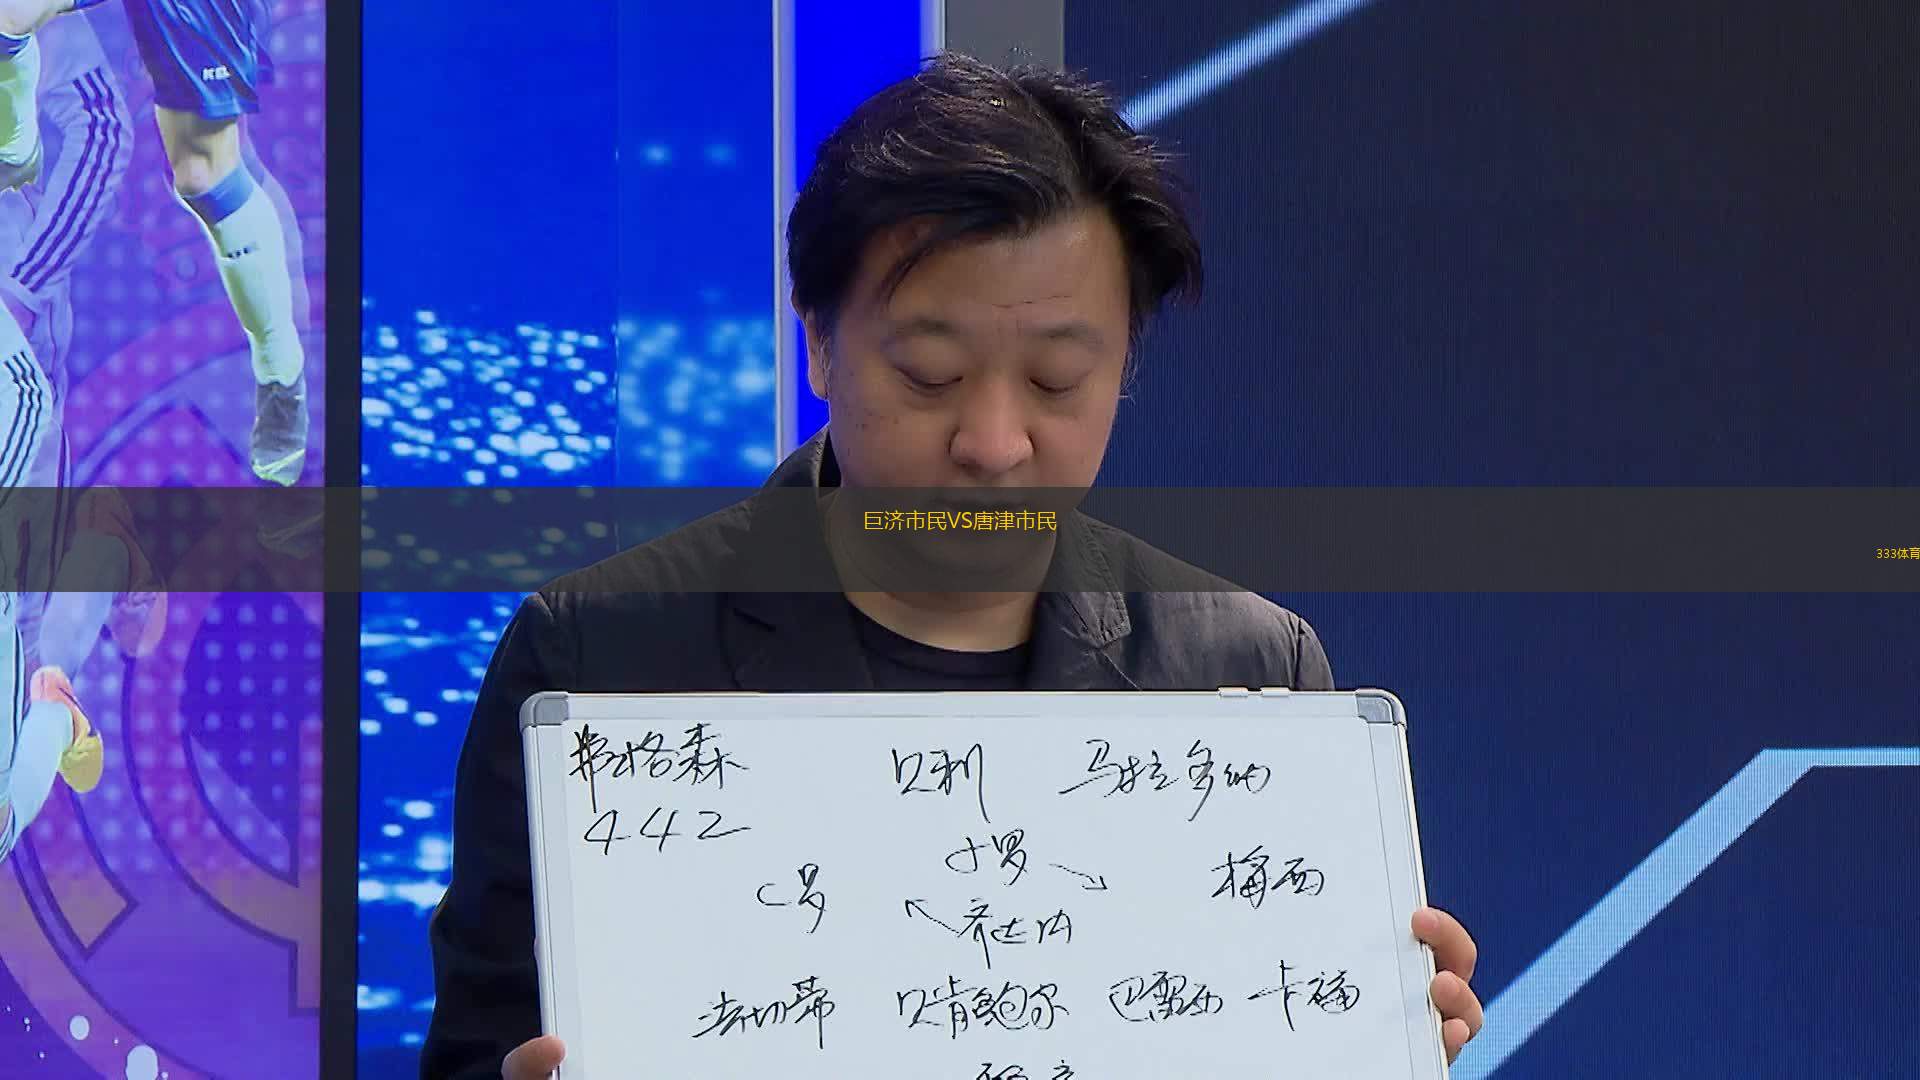 巨济市民VS唐津市民
333体育
弗格森 贝利 马拉多纳
442
小罗
C罗 梅西
齐达内
法切蒂 贝肯鲍尔 巴雷西 卡福